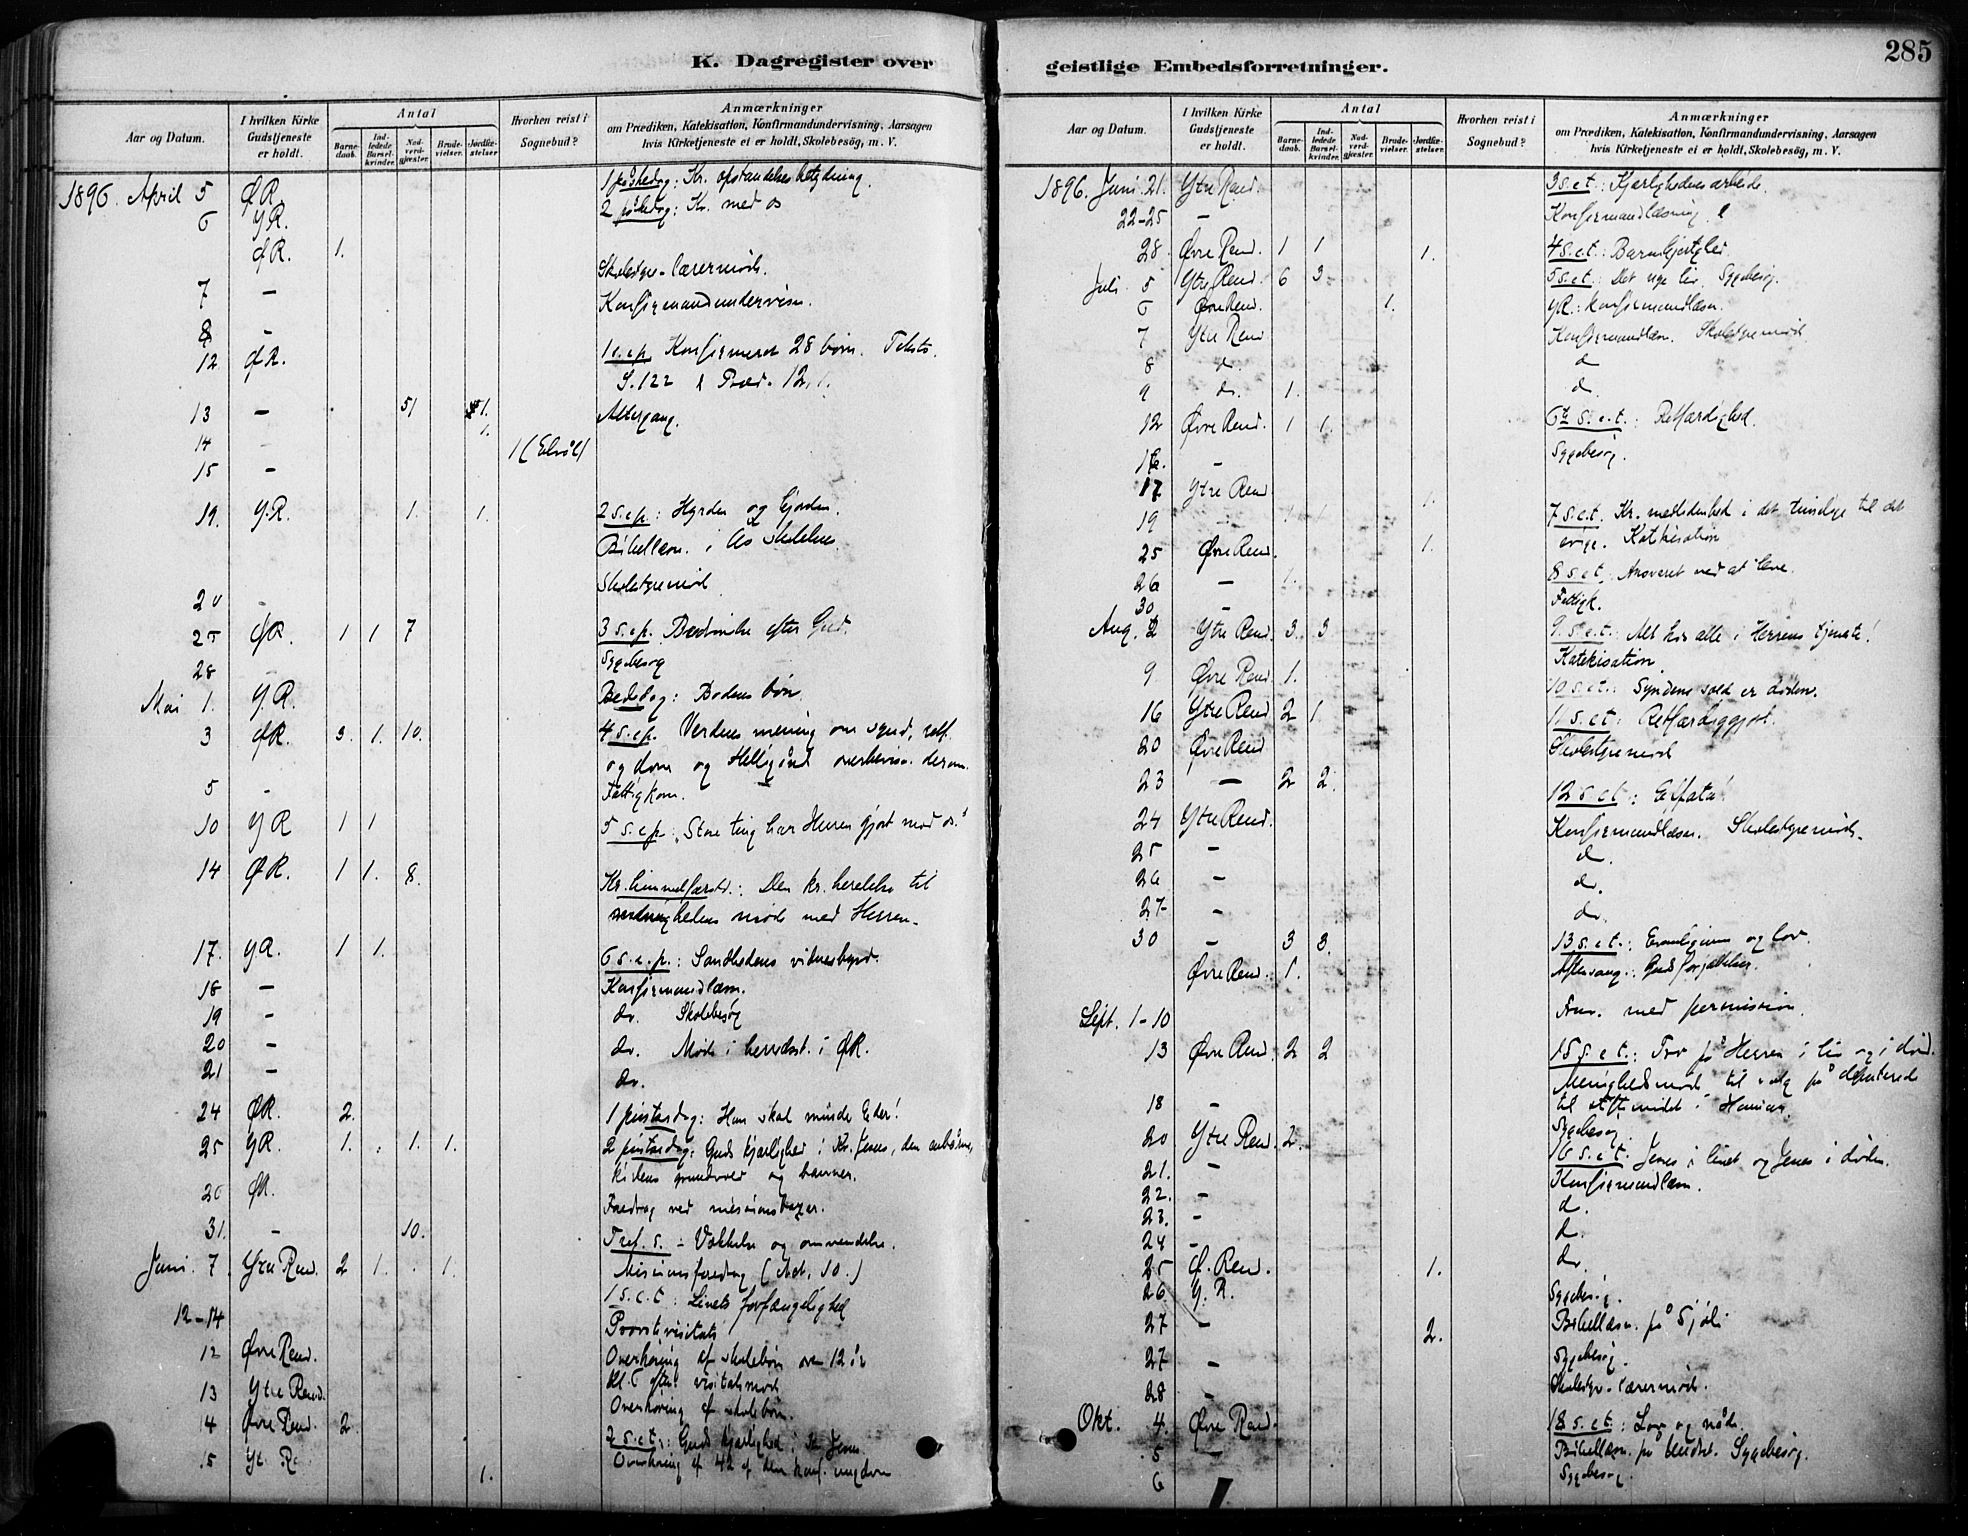 K. Dagregister over
Aar og Datum.
I hvilken Kirke Gudstjeneste er holdt.
Antal
Barnedaab.
Indledede Barselkvinder.
Nadverdgjester.
Brudevielser.
Jordfæstelser.
Hvorhen reist i Sognebud?
Anmærkninger
om Prædiken, Katekisation, Konfirmandundervisning, Aarsagen
hvis Kirketjeneste ei er holdt, Skolebesög, m. V.
1896. April 5 ØR. 1 påskedag: Kr. opstandelses betydning.
6 YR. 2 påskedag: Kr. med os
ØR. 1.
Skolestyre-lærermøde.
7 - Konfirmandundervisn.
8 -
12 ØR. 1 s. e p. Konfirmeret 28 børn. Tekst
S. 122 Præd. 12, 1.
13 - 51 1. Altergang.
14 - 1.
15 - 1 (Elvål)
19. Y.R. 1. 1. 2 s. e p.: Hyrden og hjorden.
Bibellæsn. i Ås skolehus.
20 - Skolestyremöd
25 ØR. 1 1 7 3 s. e p.
28 - Sygebesøg
Mai 1. Y.R. Bededag: Bodens bøn.
3 ØR. 3. 1. 10. 4 s. e p. Verdens mening om synd, retf.
og dom og Helligånd overbevisn. derom.
5 - Fattigkom.
10 YR 1 1 5 s. e p. "Store ting har Herren gjort mod os."
14 ØR. 1 1. 8. Kr. himmelfartsd.: Den kr. til
møde med Herren.
17. YR. 1 1. 6 s. e. p.: Sandhedens vidnesbyrd.
18 - Konfirmandlæsn.
19 - do. Skolebesøg
20 - do. Møde i herredsst. i ØR.
21 - do.
24 ØR. 2. 1 pintsedag: Han skal minde Eder!
25 YR. 1. . 1. 1. 2 pintsedag: Guds kjærlighed i Kr. Jesus, den enbårne,
kirkens grundvold og banner.
26 ØR. Foredrag ved missionsbazar.
31. - 10. Tref. s. - Vækkelse og omvendelse.
Juni. 7. Ytre Rend. 2 1. . 1. Missionsforedrag (Act. 10.)
1 s. e. t.: Livets forfængelighed
12-14 Provstevisitats
12 Øvre Rend. Overhøring af skolebørn over 12 år
Kl. 5 efter visitatsmøde
13 Ytre Rend. Overhøring af skolebørn.
14 Øvre Rend. 2. 2 s. e t.: Guds kjærlighed i Kr. Jesus
15 Yt. R. 1. Overhøring af 42 af den konf. ungdom
geistlige Embedsforretninger.
285
Aar og Datum.
I hvilken Kirke Gudstjeneste er holdt.
Antal
Barnedaab.
Indledede Barselkvinder.
Nadverdgjester.
Brudevielser.
Jordfæstelser.
Hvorhen reist i Sognebud?
Anmærkninger
om Prædiken, Katekisation, Konfirmandundervisning, Aarsagen
hvis Kirketjeneste ei er holdt, Skolebesög, m. V.
1896. Juni. 21. Ytre Rend. 3 s. e t.: Kjærlighedens arbeide.
22-25 - Konfirmandlæsning
28. Øvre Rend. 1 1 1. 4 s. e. t.: Barmhjertighed
Juli. 5 Ytre Rend. 6 3 5 s. e. t.: Det nye liv. Sygebesøg.
6 Øvre Rend. 1. YR.: Konfirmandlæsn.
7 Ytre Rend Konfirmandlæsn. Skolestyremöde
8 do. do
9 do. 1. do
12 Øvre Rend. 1 1. 6te s. e. t.: Retfærdighed.
16. - Sygebesøg.
17 Ytre Rend 1.
19 - 1 1 7 s. e. t. Kr. medlidenhed i det timelige til det
evige. Katekisation
25 Øvre Rend. 1.
26 - 1. 8 s. e t. Ansvaret ved at leve.
30 - Fattigk.
Aug. 2 Ytre Rend. 3. 3 9. s. e. t.: Alt hos alle i Herrens tjeneste!
Katekisation
9 Øvre Rend. 1. 10 s. e. t.: Syndens sold er døden.
16 Ytre Rend 2 1. 11 s. e t: Retfærdiggjort.
20 Øvre Rend Skolestyremöde
23 - 2 2. 12 s. e t.: Effata!
24 Ytre Rend. Konfirmandlæsn. Skolestyremöde.
25 - do.
26 - do.
27 - do.
30 - 3 3. 13 s. e. t.: Evangelium og lov.
Øvre Rend. 1. Aftensang.: Guds forjættelser.
Sept. 1-10 med permission.
13 Øvre Rend. 2 2 15 s. e t.: Tro på Herren i liv og i død.
Menighedsmøde til valg på deputerede
til stiftsmødet i Hamar.
18 - Sygebesøg
20 Ytre Rend. 2. 16 s. e. t. Jesus i livet og Jesus i døden.
21. - Konfirmandlæsn.
22. - do.
23. - do.
24 - do.
25 Ø. Rend. 1. Sygebesøg.
26. Y. R. Bibellæsn. på Sjøli
27 - 2.
27 - Sygebesøg.
28 - Skolestyre-lærermøde.
Okt. 4. Øvre Rend. 18 s. e t: Lov og nåde
5 - Bibellæsn. på Sygebesøg.
6 Sygebesøg.